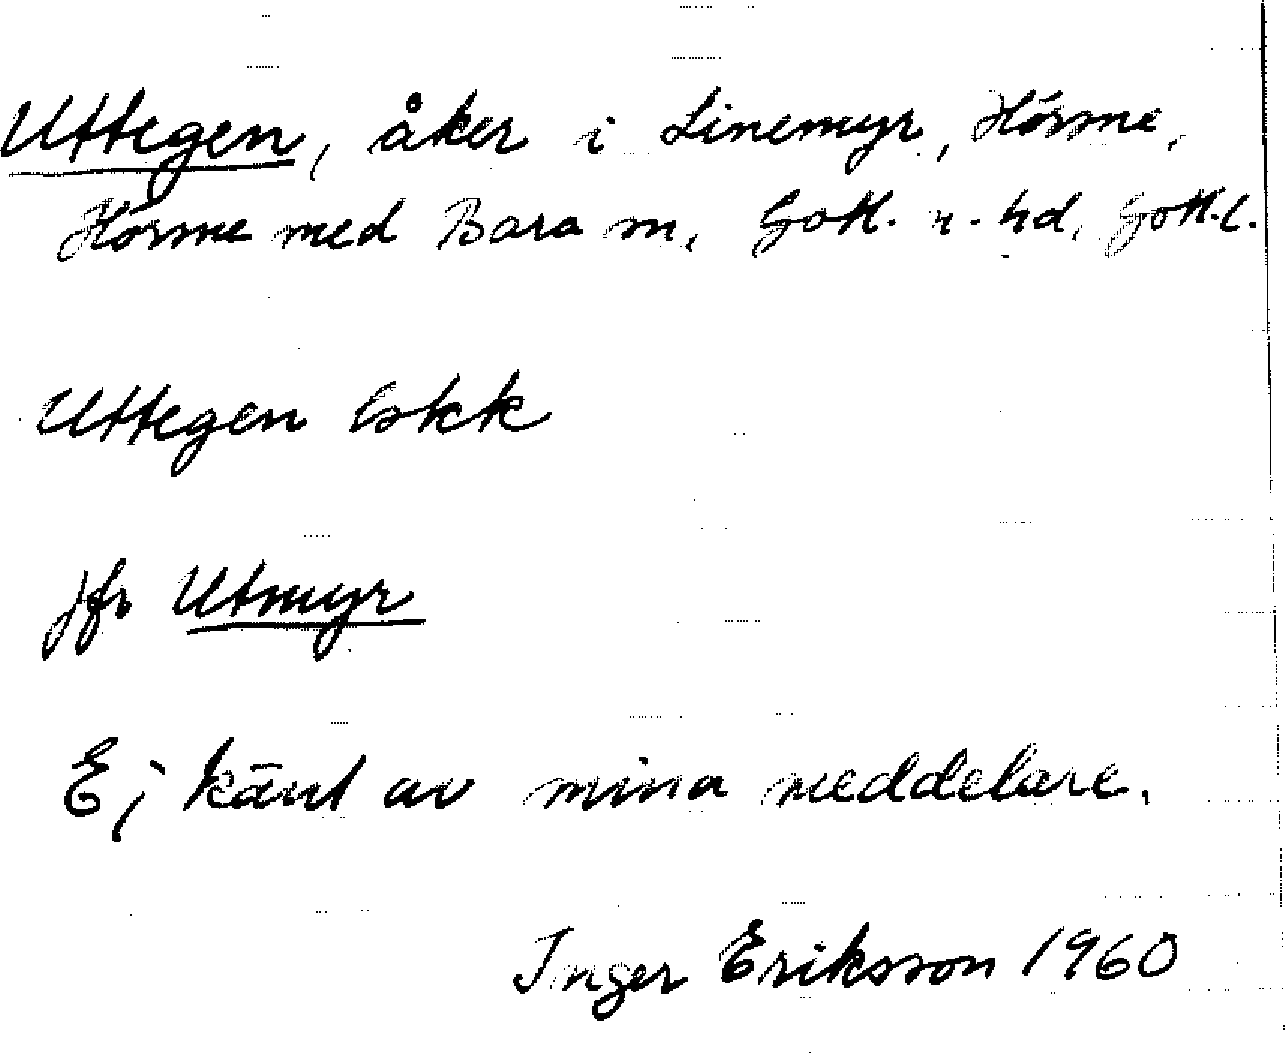 Uttegen, åker i Linemyr, Hörsne,
Hörsne med Bara sn, Gotl. n. hd, Gotl. l.
Uttegen Eskk
jfr Utmyr
Ej känt av mina meddelare.
Inger Eriksson 1960